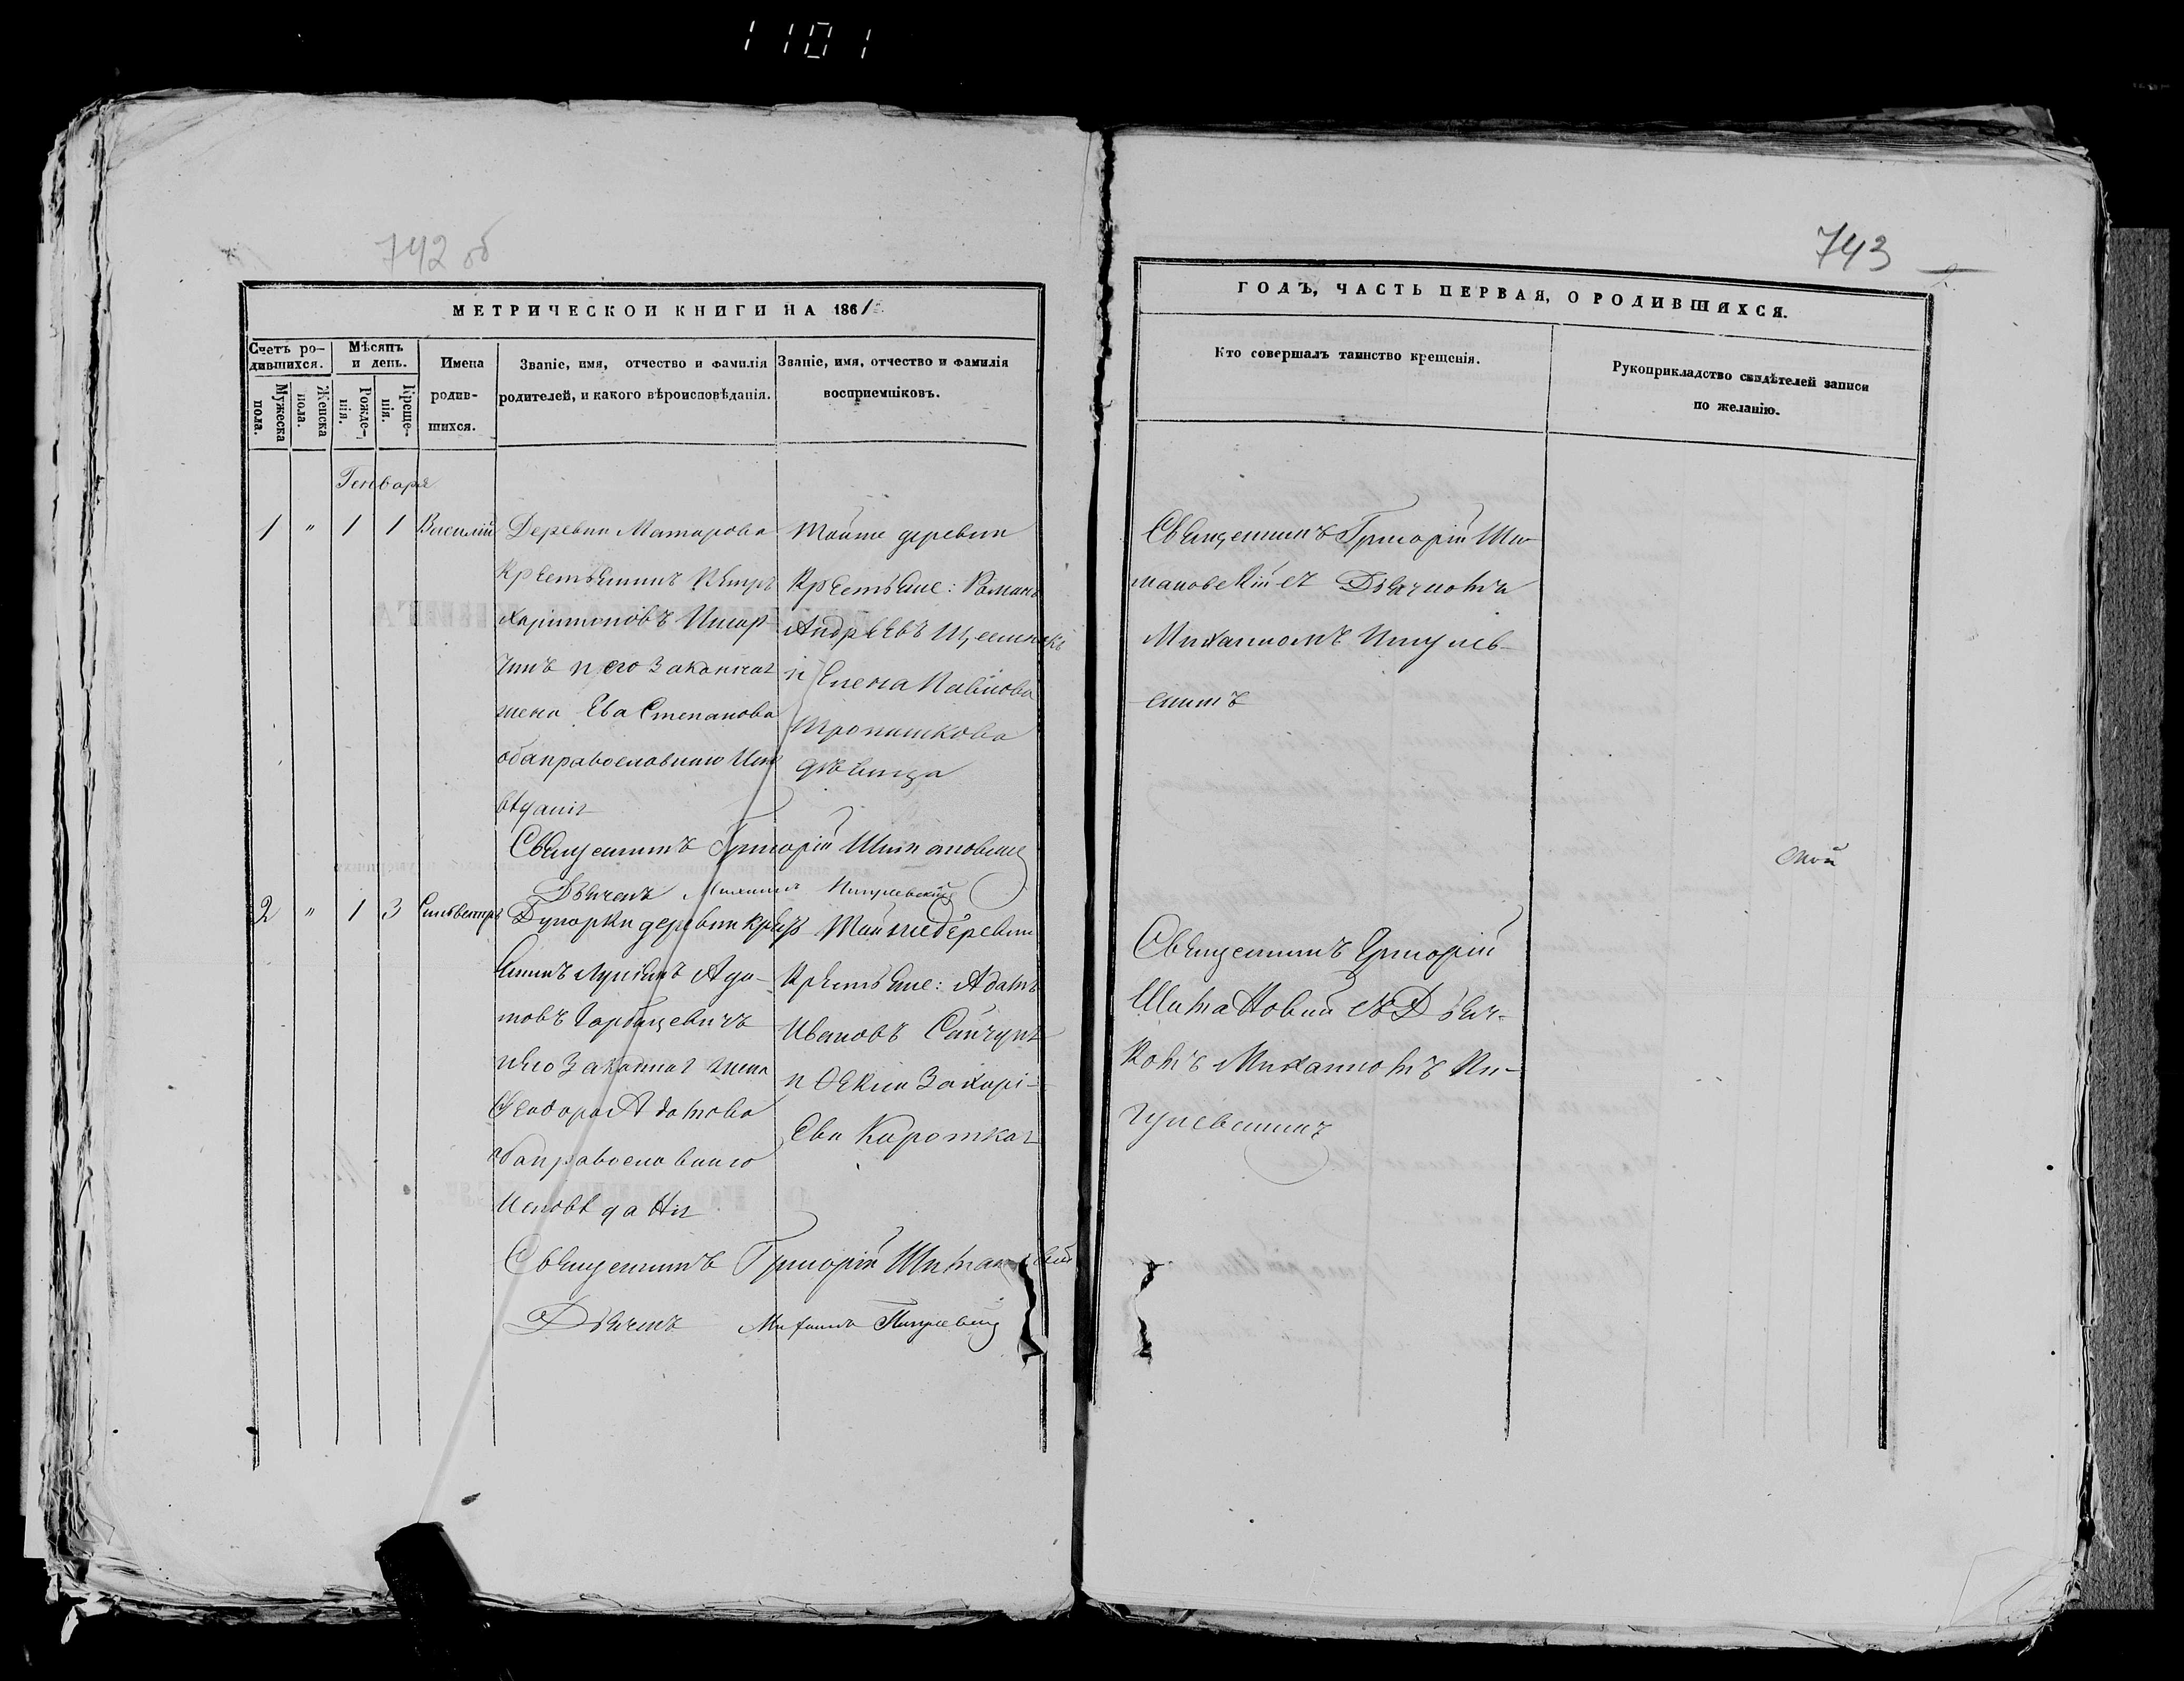 1101
742 об
МЕТРИЧЕСКОЙ КНИГИ НА 1861
Счетъ ро-
дившихся.
Мѣсяцъ
и день.
Мужеска
пола.
Женска
пола.
Рожде-
нія.
Креще-
нія.
Имена
родив-
шихся.
Званіе, имя, отчество и фамилія
родителей, и какого вѣроисповѣданія.
Званіе, имя, отчество и фамилія
восприемниковъ.
Генваря
1 " 1 1 Василій
Деревни Матарова
Крестьянинъ Петръ
Харитоновъ
и его законная
жена Ева Степанова
оба православнаго Испо
вѣданія
Тойже деревни
Крестьяне: Романъ
Андрѣевъ
и Елена Павлова
дѣвица
Священникъ Григорій Шимановскій
Дьячекъ Михаилъ Пигулевскій
2 " 1 3 Сильвестръ
деревни Крест
янинъ Ада-
мовъ
и его законная жена
Ѳеодора Адамова
оба православнаго
Исповѣданія
Тойже деревни
Крестьяне: Адамъ
Ивановъ
и Ѳекла Захарі-
ева Кароткая
Священникъ Григорій Шимановскій
Дьячекъ Михаилъ Пигулевскій
743
ГОДЪ, ЧАСТЬ ПЕРВАЯ, О РОДИВШИХСЯ.
Кто совершалъ таинство крещенія.
Рукоприкладство свидѣтелей записи
по желанію.
Священникъ Григорій Ши-
мановскій съ Дьячкомъ
Михаиломъ Пигулев-
скимъ
Священникъ Григорій
Шимановскій съ Дьяч-
комъ Михаиломъ Пи-
гулевскимъ